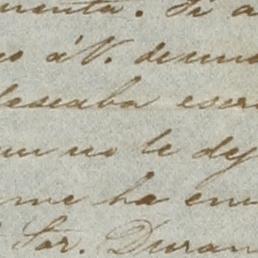 menta. Si a
o á V. demo
deseaba escri
un no le dej
me ha en
Sor. Duran